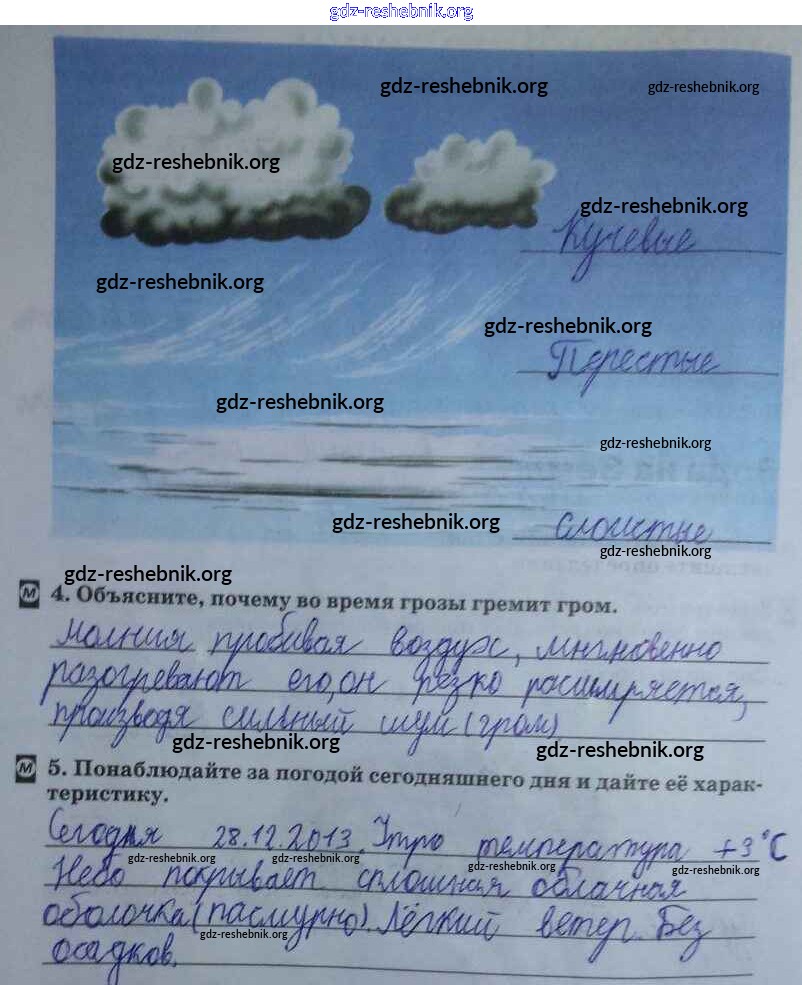 gdz-reshebnik.org
gdz-reshebnik.org
gdz-reshebnik.org
gdz-reshebnik.org
gdz-reshebnik.org
Кучевые
gdz-reshebnik.org
gdz-reshebnik.org
Перестые
gdz-reshebnik.org
gdz-reshebnik.org
gdz-reshebnik.org
Слоистые
gdz-reshebnik.org
gdz-reshebnik.org
М 4. Объясните, почему во время грозы гремит гром.
Молния пробивая воздух, мнгновенно
разогревают его, он резко расширяется,
производя сильный шум (гром)
gdz-reshebnik.org
gdz-reshebnik.org
М 5. Понаблюдайте за погодой сегодняшнего дня и дайте её харак-
теристику.
Сегодня 28.12.2013. Утро температура +3°С
gdz-reshebnik.org
gdz-reshebnik.org
gdz-reshebnik.org
gdz-reshebnik.org
Небо покрывает сплошная облачная
оболочка (пасмурно). Лёгкий ветер. Без
gdz-reshebnik.org
осадков.